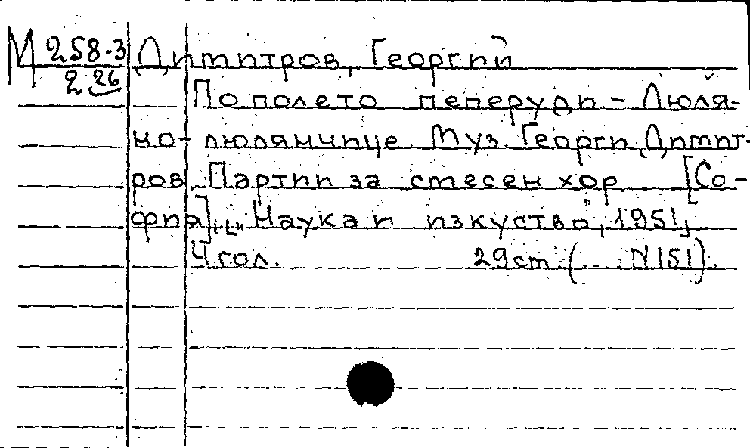 М 258-3 Димитров, Георгий
2 26
По полето пеперуди - Люля-
но-люлянчице Муз. Георги Димит-
ров. Партии за смесен хор [Со-
фия], "Наука и изкуство", 1951,
4 гол. 29 cm (... N 151).